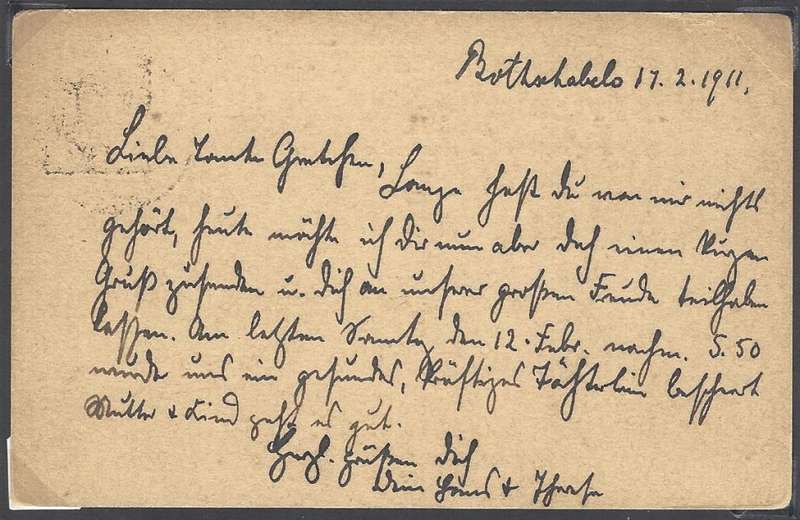 Botschabelo 17.2.1911.
Liebe Tante Gretchen,
Lange hast du von mir nichts
gehört, heute möchte ich dir nun aber doch einen kurzen
Gruß zusenden u. dich an unserer großen Freude teilhaben
lassen. Am letzten Sonntag, den 12. Febr. nachm. 5.50
wurde uns ein gesundes, kräftiges Töchterlein beschert
Mutter & Kind geht es gut.
Herzl. grüßen dich
Dein Hans & Therese